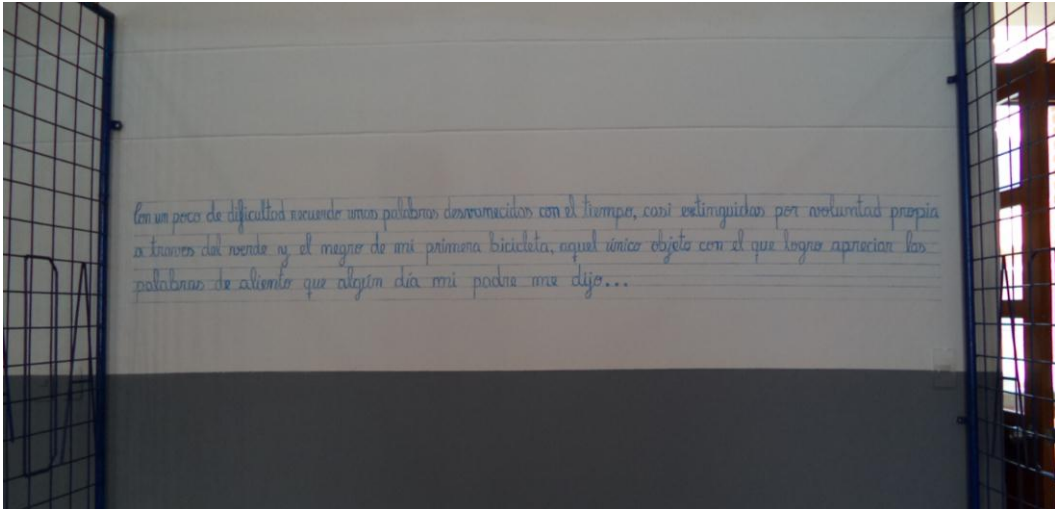 Con un poco de dificultad recuerdo unas palabras desvanecidas con el tiempo, casi extinguidas por voluntad propia
a traves del verde y el negro de mi primera bicicleta, aquel único objeto con el que logro apreciar las
palabras de aliento que algún día mi padre me dijo...